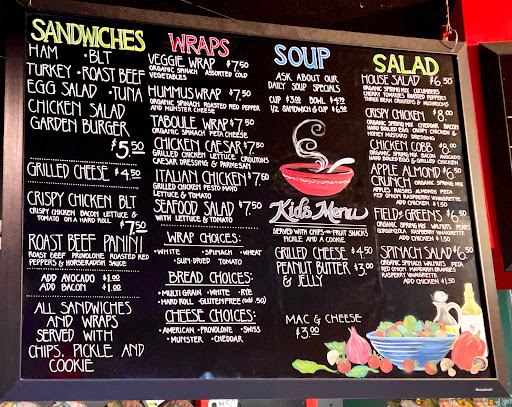 SANDWICHES
HAM • BLT
TURKEY • ROAST BEEF
EGG SALAD • TUNA
CHICKEN SALAD
GARDEN BURGER
$5.50
GRILLED CHEESE $4.50
CRISPY CHICKEN BLT
CRISPY CHICKEN BACON LETTUCE &
TOMATO ON A HARD ROLL
$7.50
ROAST BEEF PANINI
ROAST BEEF PROVOLONE ROASTED RED
PEPPERS & HORSERADISH SAUCE
ADD AVOCADO $1.00
ADD BACON $1.00
ALL SANDWICHES
AND WRAPS
SERVED WITH
CHIPS, PICKLE AND
COOKIE
WRAPS
VEGGIE WRAP $7.50
ORGANIC SPINACH ASSORTED COLD
VEGETABLES
HUMMUS WRAP $7.50
ORGANIC SPINACH ROASTED RED PEPPER
AND MUNSTER CHEESE
TABOULE WRAP $7.50
ORGANIC SPINACH FETA CHEESE
CHICKEN CAESAR $7.50
GRILLED CHICKEN LETTUCE CROUTONS
CAESAR DRESSING & PARMESAN
ITALIAN CHICKEN $7.50
GRILLED CHICKEN PESTO MAYO
LETTUCE & TOMATO
SEAFOOD SALAD $7.50
WITH LETTUCE & TOMATO
WRAP CHOICES:
• WHITE • SPINACH • WHEAT
• SUN-DRIED TOMATO
BREAD CHOICES:
• MULTI GRAIN • WHITE • RYE
• HARD ROLL • GLUTEN FREE (add .50)
CHEESE CHOICES:
• AMERICAN • PROVOLONE • SWISS
• MUNSTER • CHEDDAR
SOUP
ASK ABOUT OUR
DAILY SOUP SPECIALS
CUP $3.00 BOWL $4.75
1/2 SANDWICH & CUP $6.00
Kids Menu
SERVED WITH CHIPS OR FRUIT SNACKS,
PICKLE AND A COOKIE
GRILLED CHEESE $4.50
PEANUT BUTTER $3.00
& JELLY
MAC & CHEESE
$3.00
SALAD
HOUSE SALAD $6.50
ORGANIC SPRING MIX CUCUMBERS
CHERRY TOMATOES ROASTED PEPPERS
THREE BEAN CROUTONS & MUSHROOMS
CRISPY CHICKEN $8.00
ORGANIC SPRING MIX CHEDDAR BACON
HARD BOILED EGG CRISPY CHICKEN &
HONEY MUSTARD DRESSING
CHICKEN COBB $8.00
ORGANIC SPRING MIX BACON AVOCADO
HARD BOILED EGG & GRILLED CHICKEN
APPLE ALMOND $6.50
CRUNCH ORGANIC SPRING MIX
APPLES RAISINS ALMONDS FETA
RED ONION RASPBERRY VINAIGRETTE
ADD CHICKEN $1.50
FIELD OF GREENS $6.50
ORGANIC SPRING MIX WALNUTS PEARS
GORGONZOLA RASPBERRY VINAIGRETTE
ADD CHICKEN $1.50
SPINACH SALAD $6.50
ORGANIC SPINACH WALNUTS FETA
RED ONION MANDARIN ORANGES
RASPBERRY VINAIGRETTE
ADD CHICKEN $1.50